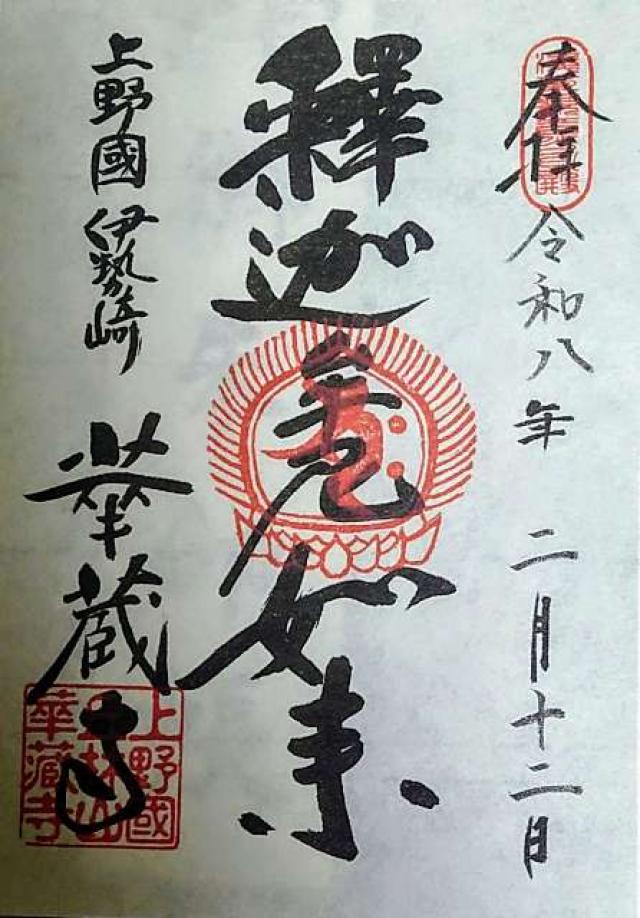 奉拝 令和八年 二月十二日
釋迦牟尼如来
上野國伊勢崎 華蔵寺
上野國
林山
華藏寺